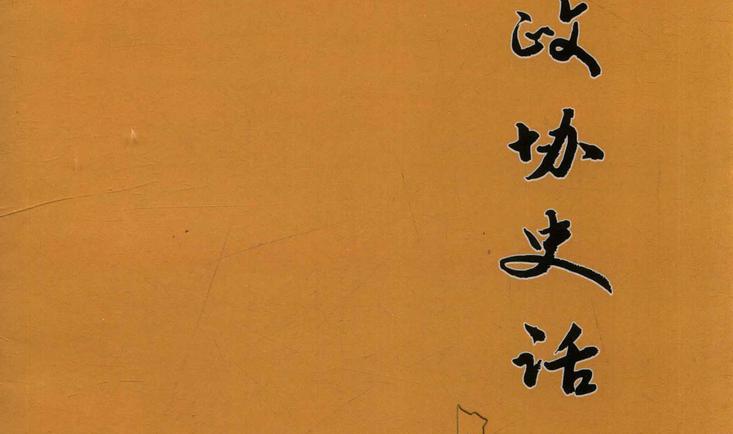 政协史话